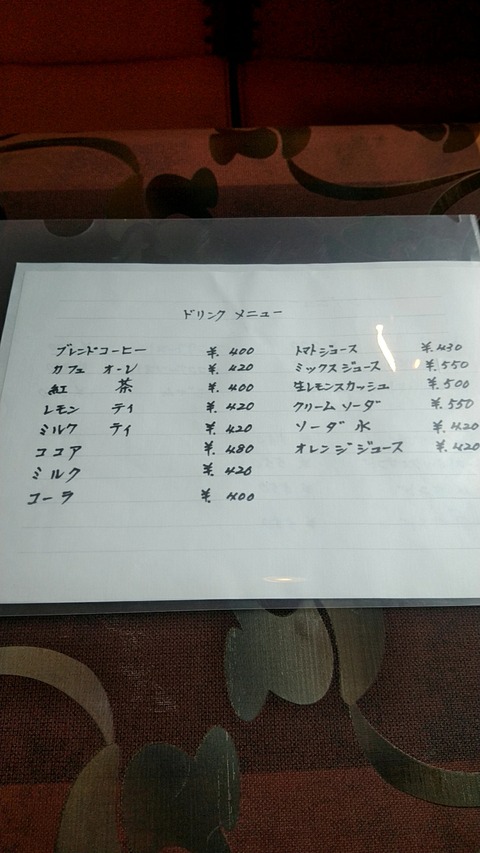 ドリンク メニュー
ブレンドコーヒー ¥.400
カフェ オーレ ¥.420
紅 茶 ¥.400
レモン ティ ¥.420
ミルク ティ ¥.420
ココア ¥.480
ミルク ¥.420
コーラ ¥.400
トマトジュース ¥.430
ミックスジュース ¥.550
生レモンスカッシュ ¥.500
クリームソーダ ¥.550
ソーダ水 ¥.420
オレンジジュース ¥.420